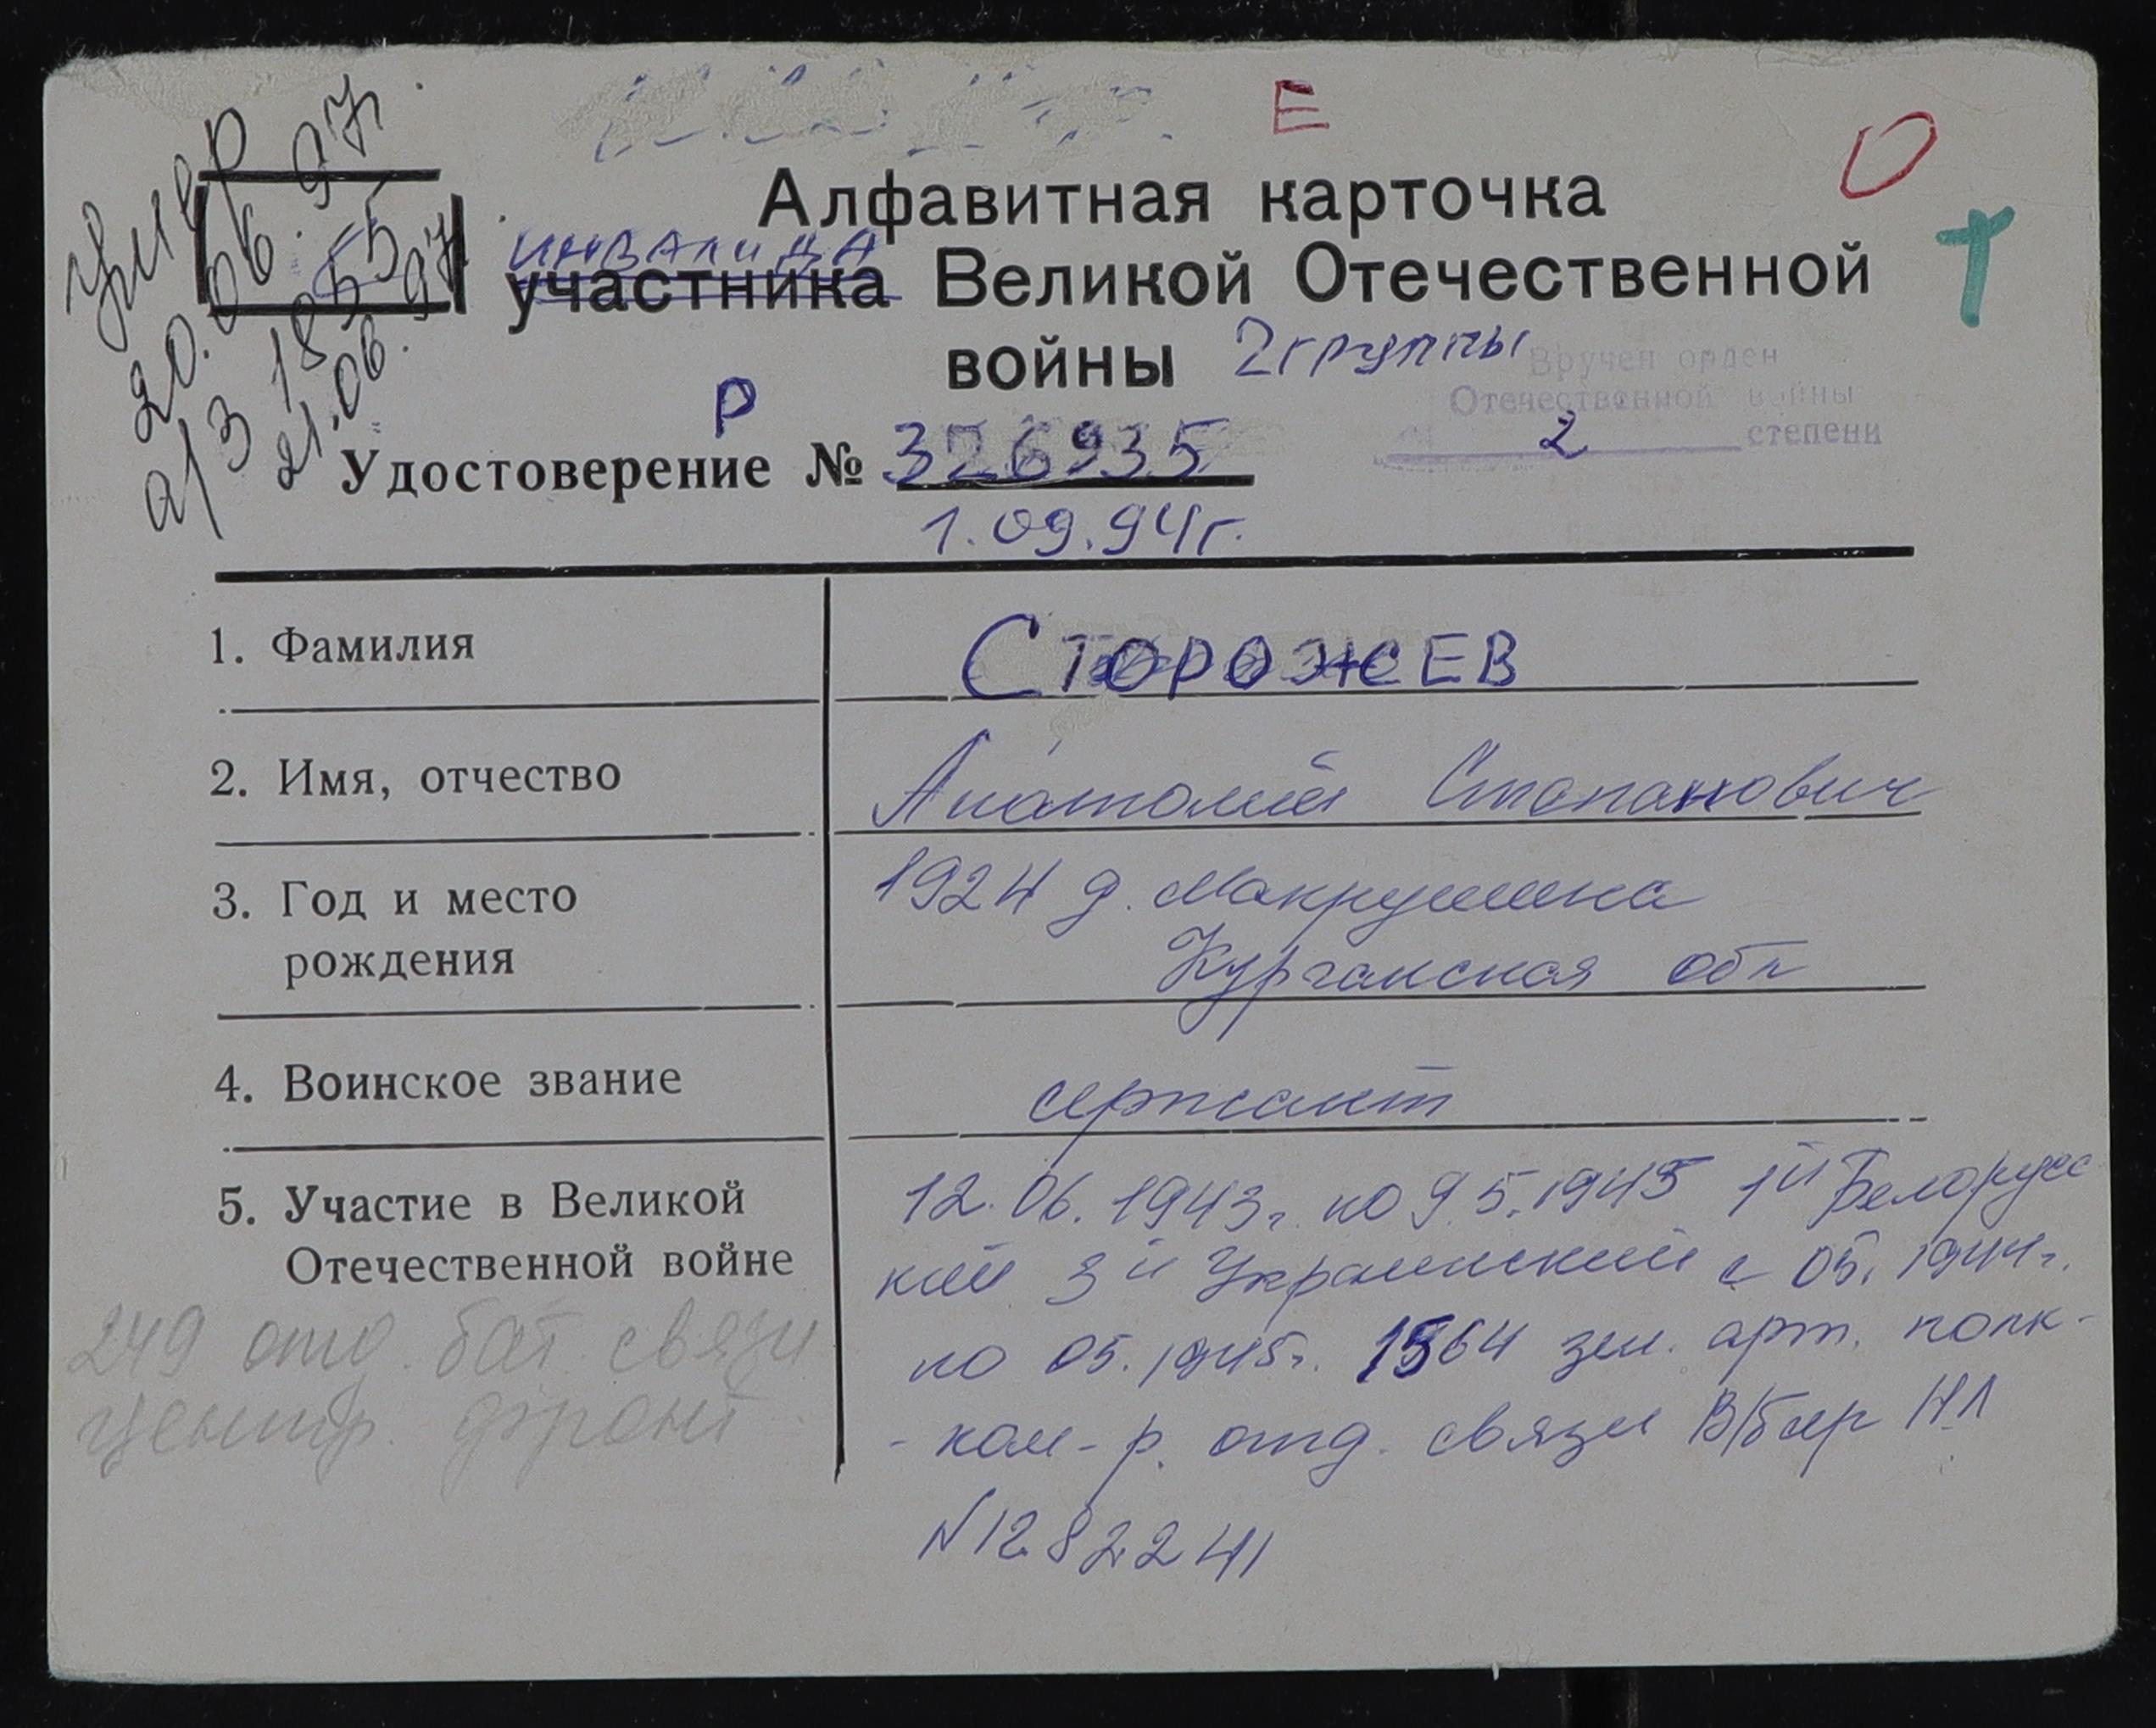 Е
О
умер
20.06.97.
а/з 1855
21.06.97
Алфавитная карточка
инвалида
участника Великой Отечественной
войны 2 группы
Вручен орден
Отечественной войны
2 степени
Р
Удостоверение № 326935
1.09.94г.
1. Фамилия СТОРОЖЕВ
2. Имя, отчество Анатолий Степанович
3. Год и место 1924 д. Макрушина
рождения Курганская обл
4. Воинское звание сержант
5. Участие в Великой 12.06.1943г. по 9.5.1945 1й Белорусс
Отечественной войне кий 3й Украинский с 05.1944г.
249 отд. бат связи по 05.1945г. 1564 зен. арт. полк-
центр. фронт - ком-р. отд. связи В/бил НЛ
N1282241